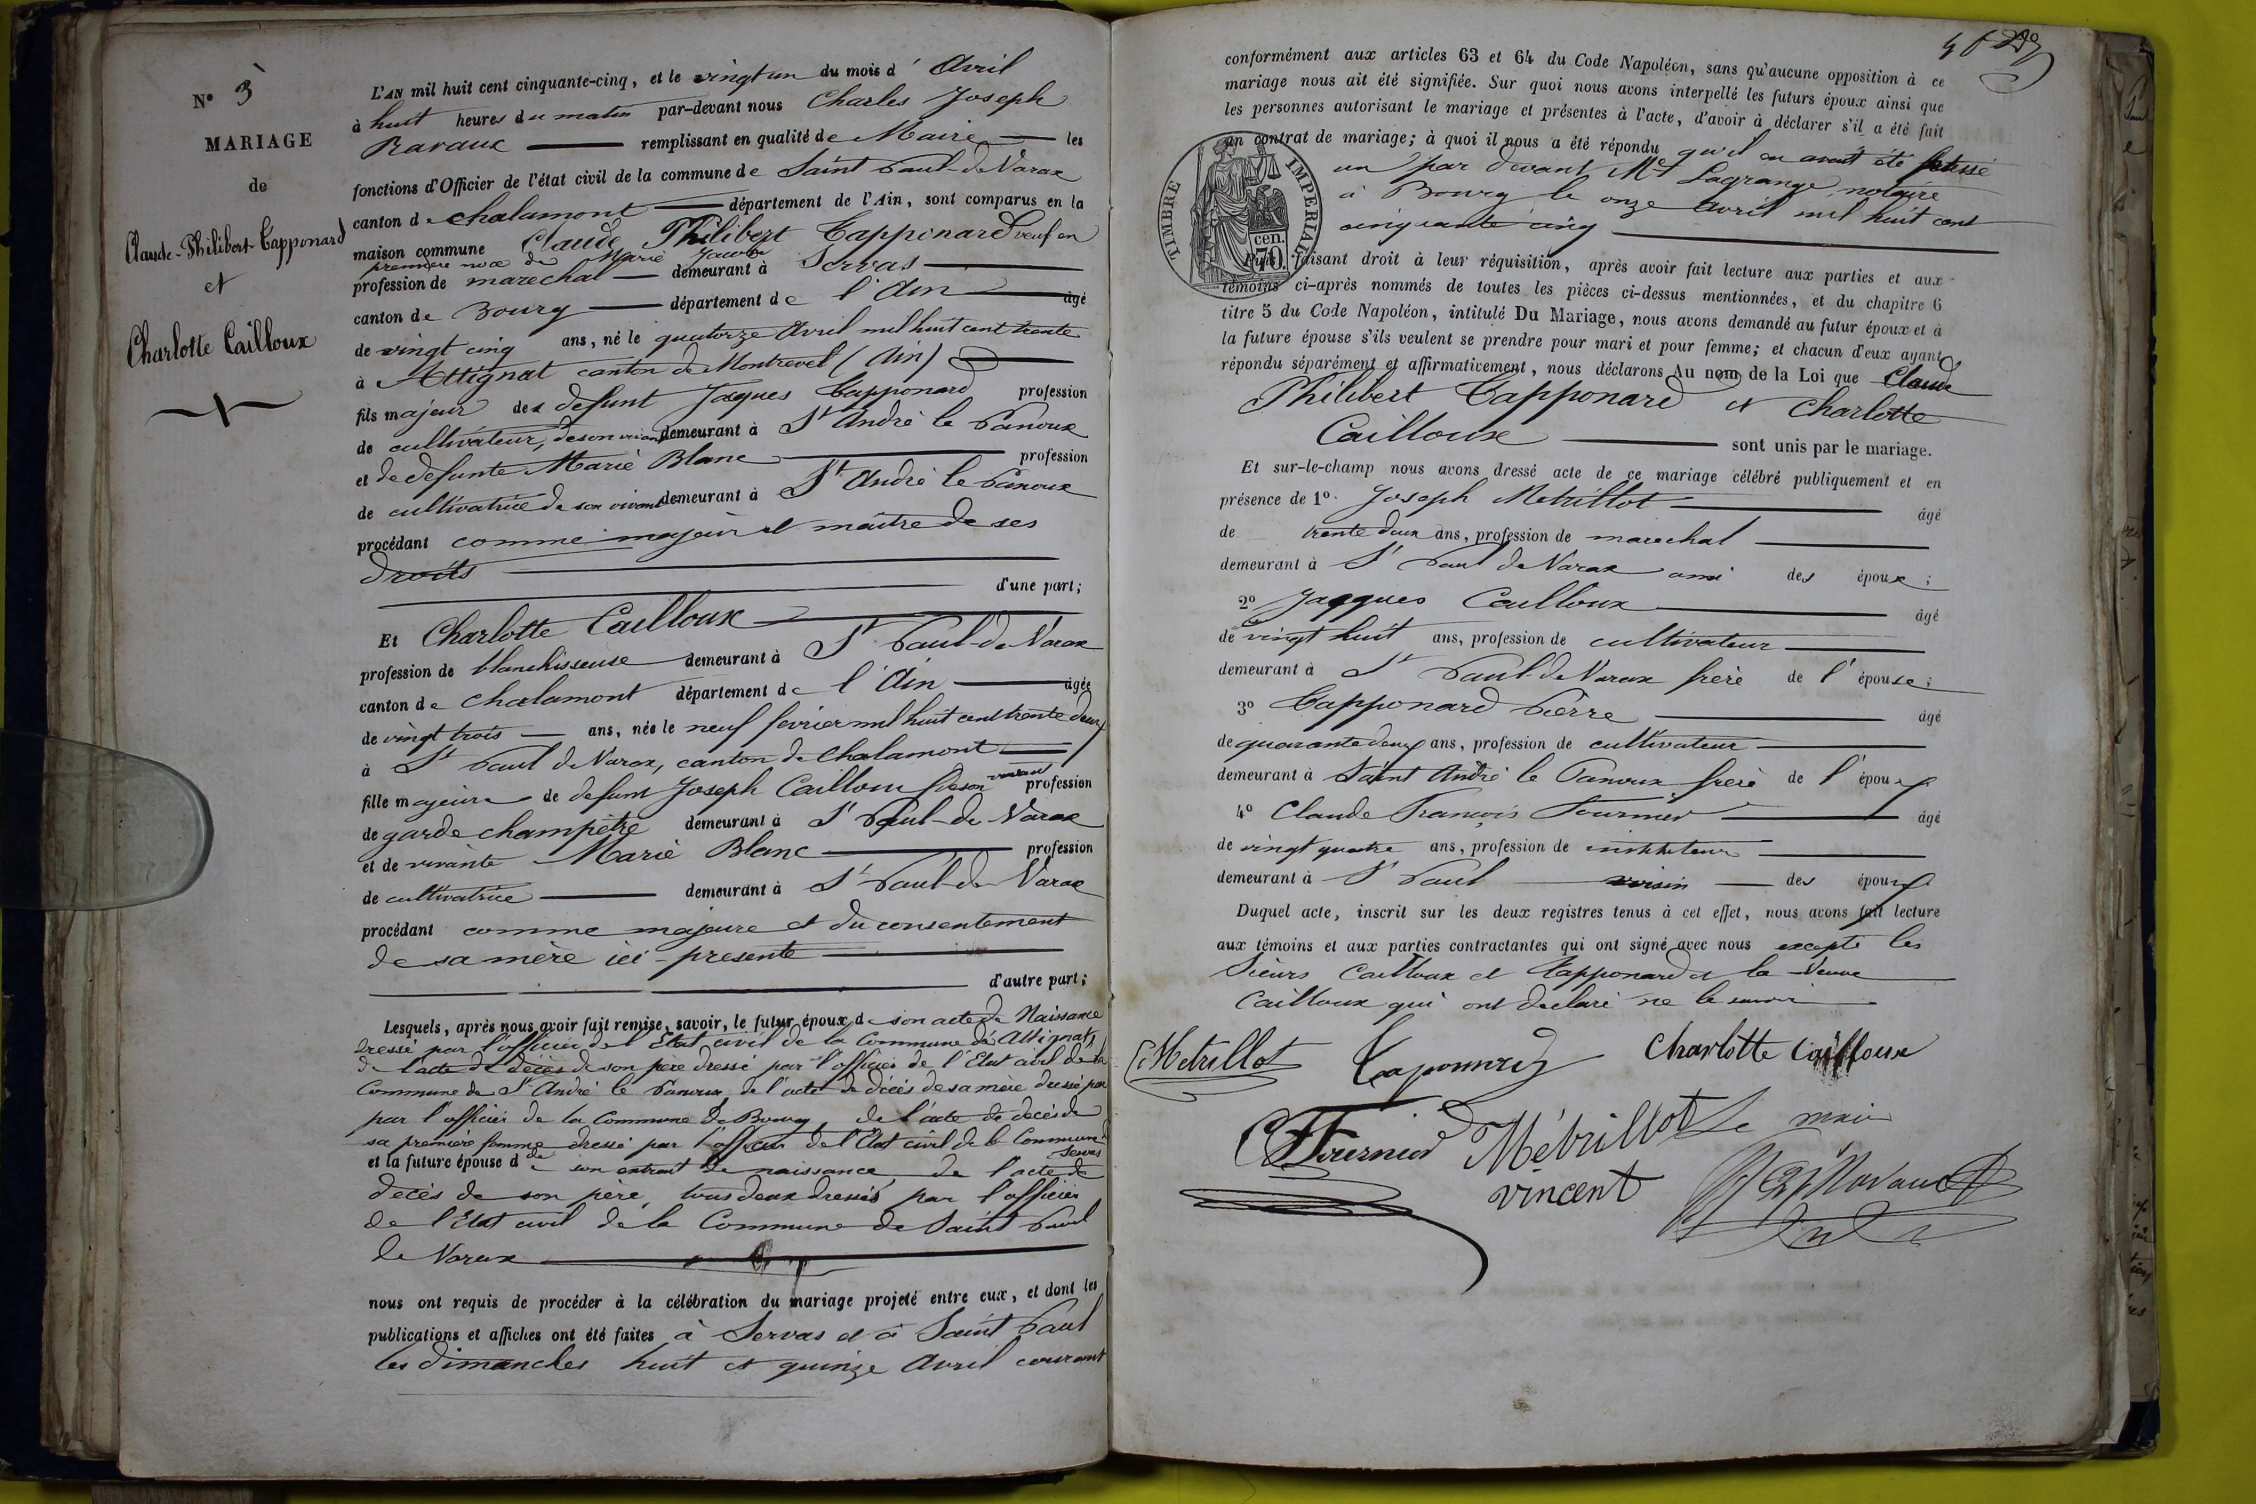 N° 3
MARIAGE
de
Claude-Philibert Tapponard
et
Charlotte Cailloux
L'AN mil huit cent cinquante-cinq, et le vingt un du mois d'Avril
à huit heures du matin par-devant nous Charles Joseph
Ravaux remplissant en qualité de Maire les
fonctions d'Officier de l'état civil de la commune de Saint Paul-de-Varax
canton de chalamont département de l'Ain, sont comparus en la
maison commune Claude Philibert Tapponard veuf en
première noce de Marie Jacob
profession de marechal demeurant à Servas
canton de Bourg département de l'Ain âgé
de vingt cinq ans, né le quatorze Avril mil huit cent trente
à Attignat canton de Montrevel (Ain)
fils majeur de defunt Jaques Tapponard profession
de cultivateur, de son vivant demeurant à St André le Panoux
et de defunte Marie Blanc profession
de cultivatrice de son vivant demeurant à St André le Panoux
procédant comme majeur et maître de ses
droits
d'une part;
Et Charlotte Cailloux
profession de blanchisseuse demeurant à St Paul-de-Varax
canton de chalamont département de l'Ain âgée
de vingt trois ans, née le neuf fevrier mil huit cent trente deux
à St Paul de Varax, canton de Chalamont
fille majeure de defunt Joseph Cailloux de son vivant profession
de garde champêtre demeurant à St Paul-de-Varax
et de vivante Marie Blanc profession
de cultivatrice demeurant à St Paul-de-Varax
procédant comme majeure et du consentement
de sa mère ici-presente
d'autre part;
Lesquels, après nous avoir fait remise, savoir, le futur époux de son acte de Naissance
dressé par l'officier de l'Etat civil de la Commune de Attignat,
de l'acte de décès de son père dressé par l'officier de l'Etat civil de la
Commune de St André le Panoux, de l'acte de décès de sa mère dressé par
par l'officier de la Commune de Bourg de l'acte de decès de
sa première femme dressé par l'officier de l'Etat civil de la Commune de
Servas
et la future épouse d de son extrait de naissance de l'acte de
decès de son père, tous deux dressés par l'officier
de l'Etat civil de la Commune de Saint Paul
de Varax
nous ont requis de procéder à la célébration du mariage projeté entre eux, et dont les
publications et affiches ont été faites à Servas et à Saint Paul
les dimanches huit et quinze Avril courant
conformément aux articles 63 et 64 du Code Napoléon, sans qu'aucune opposition à ce
mariage nous ait été signifiée. Sur quoi nous avons interpellé les futurs époux ainsi que
les personnes autorisant le mariage et présentes à l'acte, d'avoir à déclarer s'il a été fait
un contrat de mariage; à quoi il nous a été répondu qu'il en avait été passé
un par devant Me Lagrange notaire
à Bourg le onze Avril mil huit cent
cinquante cinq
TIMBRE IMPERIAL
70 cen.
faisant droit à leur réquisition, après avoir fait lecture aux parties et aux
témoins ci-après nommés de toutes les pièces ci-dessus mentionnées, et du chapitre 6
titre 5 du Code Napoléon, intitulé Du Mariage, nous avons demandé au futur époux et à
la future épouse s'ils veulent se prendre pour mari et pour femme; et chacun d'eux ayant
répondu séparément et affirmativement, nous déclarons Au nom de la Loi que Claude
Philibert Tapponard et Charlotte
Cailloux sont unis par le mariage.
Et sur-le-champ nous avons dressé acte de ce mariage célébré publiquement et en
présence de 1° Joseph Metrillot âgé
de trente deux ans, profession de marechal
demeurant à St Paul de Varax ami des époux;
2° Jacques Cailloux âgé
de vingt huit ans, profession de cultivateur
demeurant à St Paul-de-Varax frère de l'épouse;
3° Tapponard Pierre âgé
de quarante deux ans, profession de cultivateur
demeurant à Saint André le Panoux frère de l'époux
4° Claude François Fournier âgé
de vingt quatre ans, profession de instituteur
demeurant à St Paul voisin des époux
Duquel acte, inscrit sur les deux registres tenus à cet effet, nous avons fait lecture
aux témoins et aux parties contractantes qui ont signé avec nous excepté les
Sieurs Cailloux et Tapponard et la Veuve
Cailloux qui ont declaré ne le savoir
Metrillot Taponnard Charlotte Cailloux
CF Fournier Métrillot Le maire
vincent Ravaux